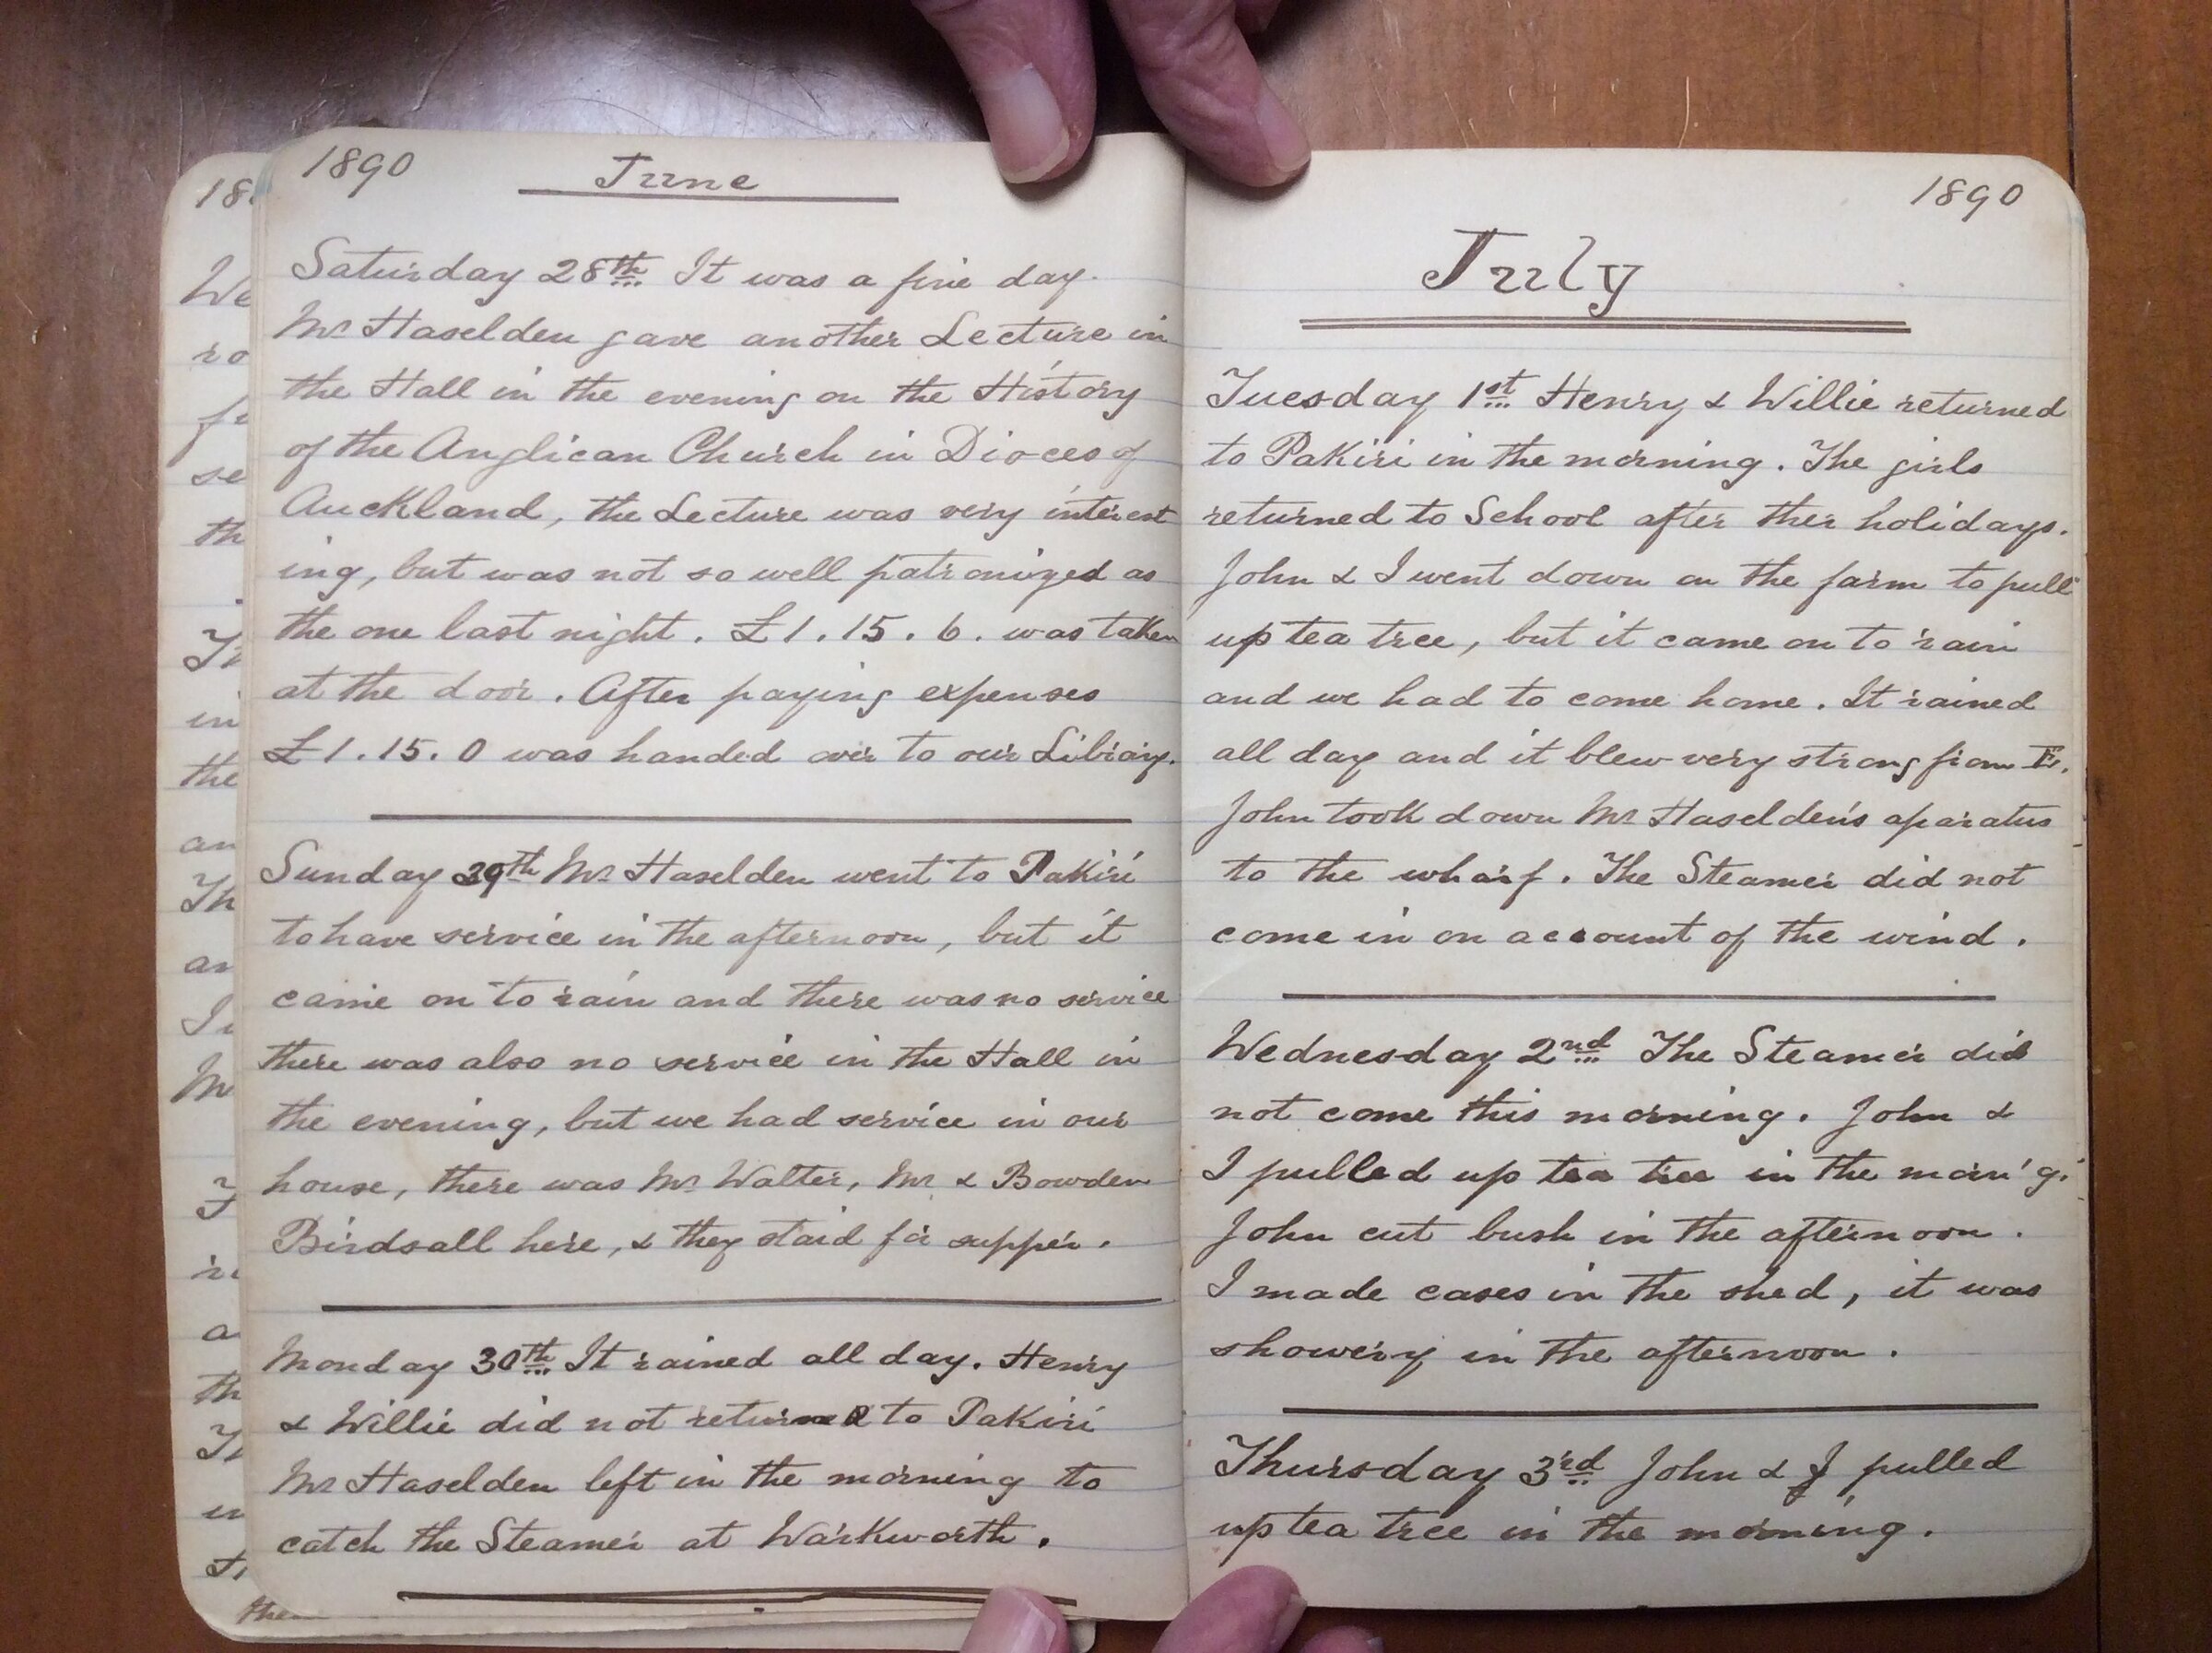 1890 June
Saturday 28th It was a fine day.
Mr Haselden gave another Lecture in
the Hall in the evening on the History
of the Anglican Church in Dioces of
Auckland, the Lecture was very interest
ing, but was not so well patronized as
the one last night. £1.15.6. was taken
at the door. After paying expenses
£1.15.0 was handed over to our Library.
Sunday 29th Mr Haselden went to Pakiri
to have service in the afternoon, but it
came on to rain and there was no service
there was also no service in the Hall in
the evening, but we had service in our
house, there was Mr Walter, Mr & Bowden
Birdsall here, & they staid for supper.
Monday 30th It rained all day. Henry
& Willie did not returned to Pakiri
Mr Haselden left in the morning to
catch the Steamer at Warkworth.
1890
July
Tuesday 1st Henry & Willie returned
to Pakiri in the morning. The girls
returned to School after ther holidays.
John & I went down on the farm to pull
up tea tree, but it came on to rain
and we had to come home. It rained
all day and it blew very strong from E.
John took down Mr Haselden's aparatus
to the wharf. The Steamer did not
come in on account of the wind.
Wednesday 2nd The Steamer did
not come this morning. John &
I pulled up tea tree in the morn'g.
John cut bush in the afternoon.
I made cases in the shed, it was
showery in the afternoon.
Thursday 3rd John & I pulled
up tea tree in the morning.